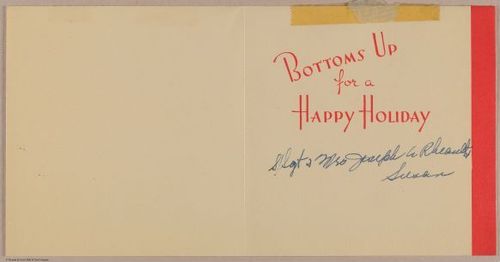 Bottoms Up
for a
Happy Holiday
S/Sgt & Mrs Joseph A Rheault
Susan